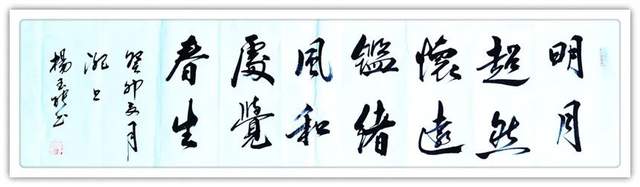 明月
超然
懷遠
鑑緒
風和
處覺
春生
癸卯夏月
上
楊玉书